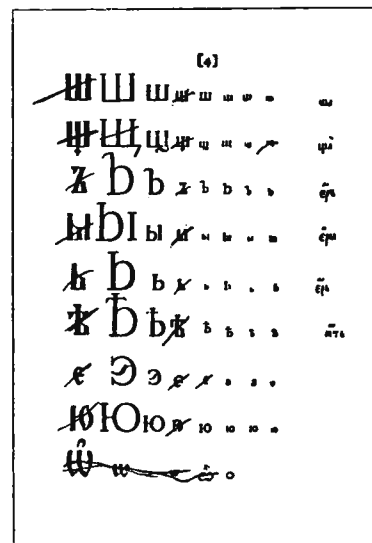 [4]
Ш Ш ш ш ш ш ш ш ша
Щ Щ щ щ щ щ щ щ ща
Ъ Ъ ъ ъ ъ ъ ъ ъ еръ
Ы Ы ы ы ы ы ы ы еры
Ь Ь ь ь ь ь ь ь ерь
Ѣ Ѣ ѣ ѣ ѣ ѣ ѣ ѣ ять
є Э э є є э э э
Ю Ю ю ю ю ю ю ю
Ѿ